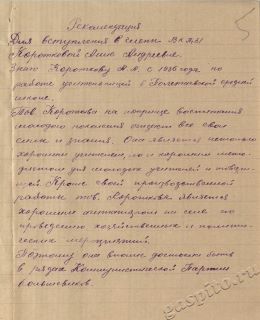 5
Рекомендация
Для вступления в члены ВКП(б)
Коротковой Анны Андреевны.
Знаю Короткову А.А. с 1936 года по
работе учительницей в средней
школе.
Тов. Короткова на поприще воспитания
молодого поколения отдает все свои
силы и знания. Она является не только
хорошим учителем, но и хорошим
для молодых учителей и
Кроме своей производственной
работы тов. Короткова является
хорошим агитатором на селе по
проведению хозяйственных и полити-
ческих мероприятий.
Поэтому она вполне достойна быть
в рядах Коммунистической Партии
большевиков.
gaspito.ru